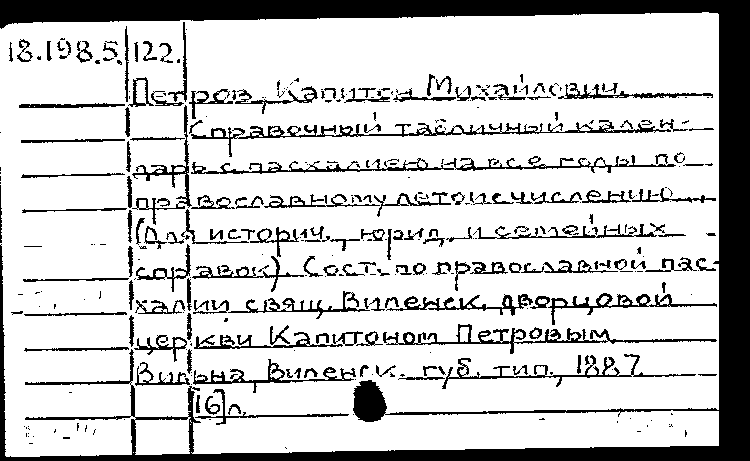 18.198.5.122.
Петров, Капитон Михайлович.
Справочный табличный кален-
дарь с пасхалиею на все годы по
православному летоисчислению
(для историч., юрид. и семейных
справок). Сост. по православной пас-
халии свящ. Виленск. дворцовой
церкви Капитоном Петровым.
Вильна, Виленск. губ. тип., 1887.
[16]л.